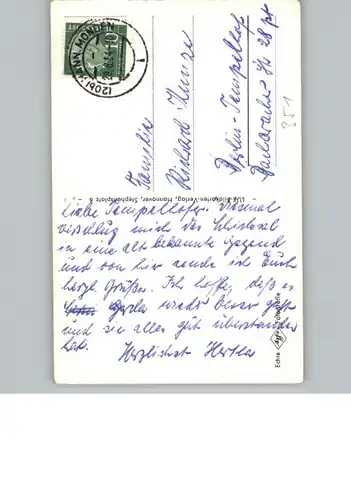 (20b) HANN. MÜNDEN
10
Familie
Richard Kunze
Berlin-Tempelhof
351
Lux-Bildkarten-Verlag, Hannover, Stephansplatz 6
Liebe Tempelhofer. Diesmal
verschlug mich das Schicksal
in eine alt bekannte Gegend
und von hier sende ich Euch
herzl. Grüße. Ich hoffe, daß es
Gerda wieder besser geht
und sie alles gut überstanden
hat. Herzlichst Hertha
Echte Agfa